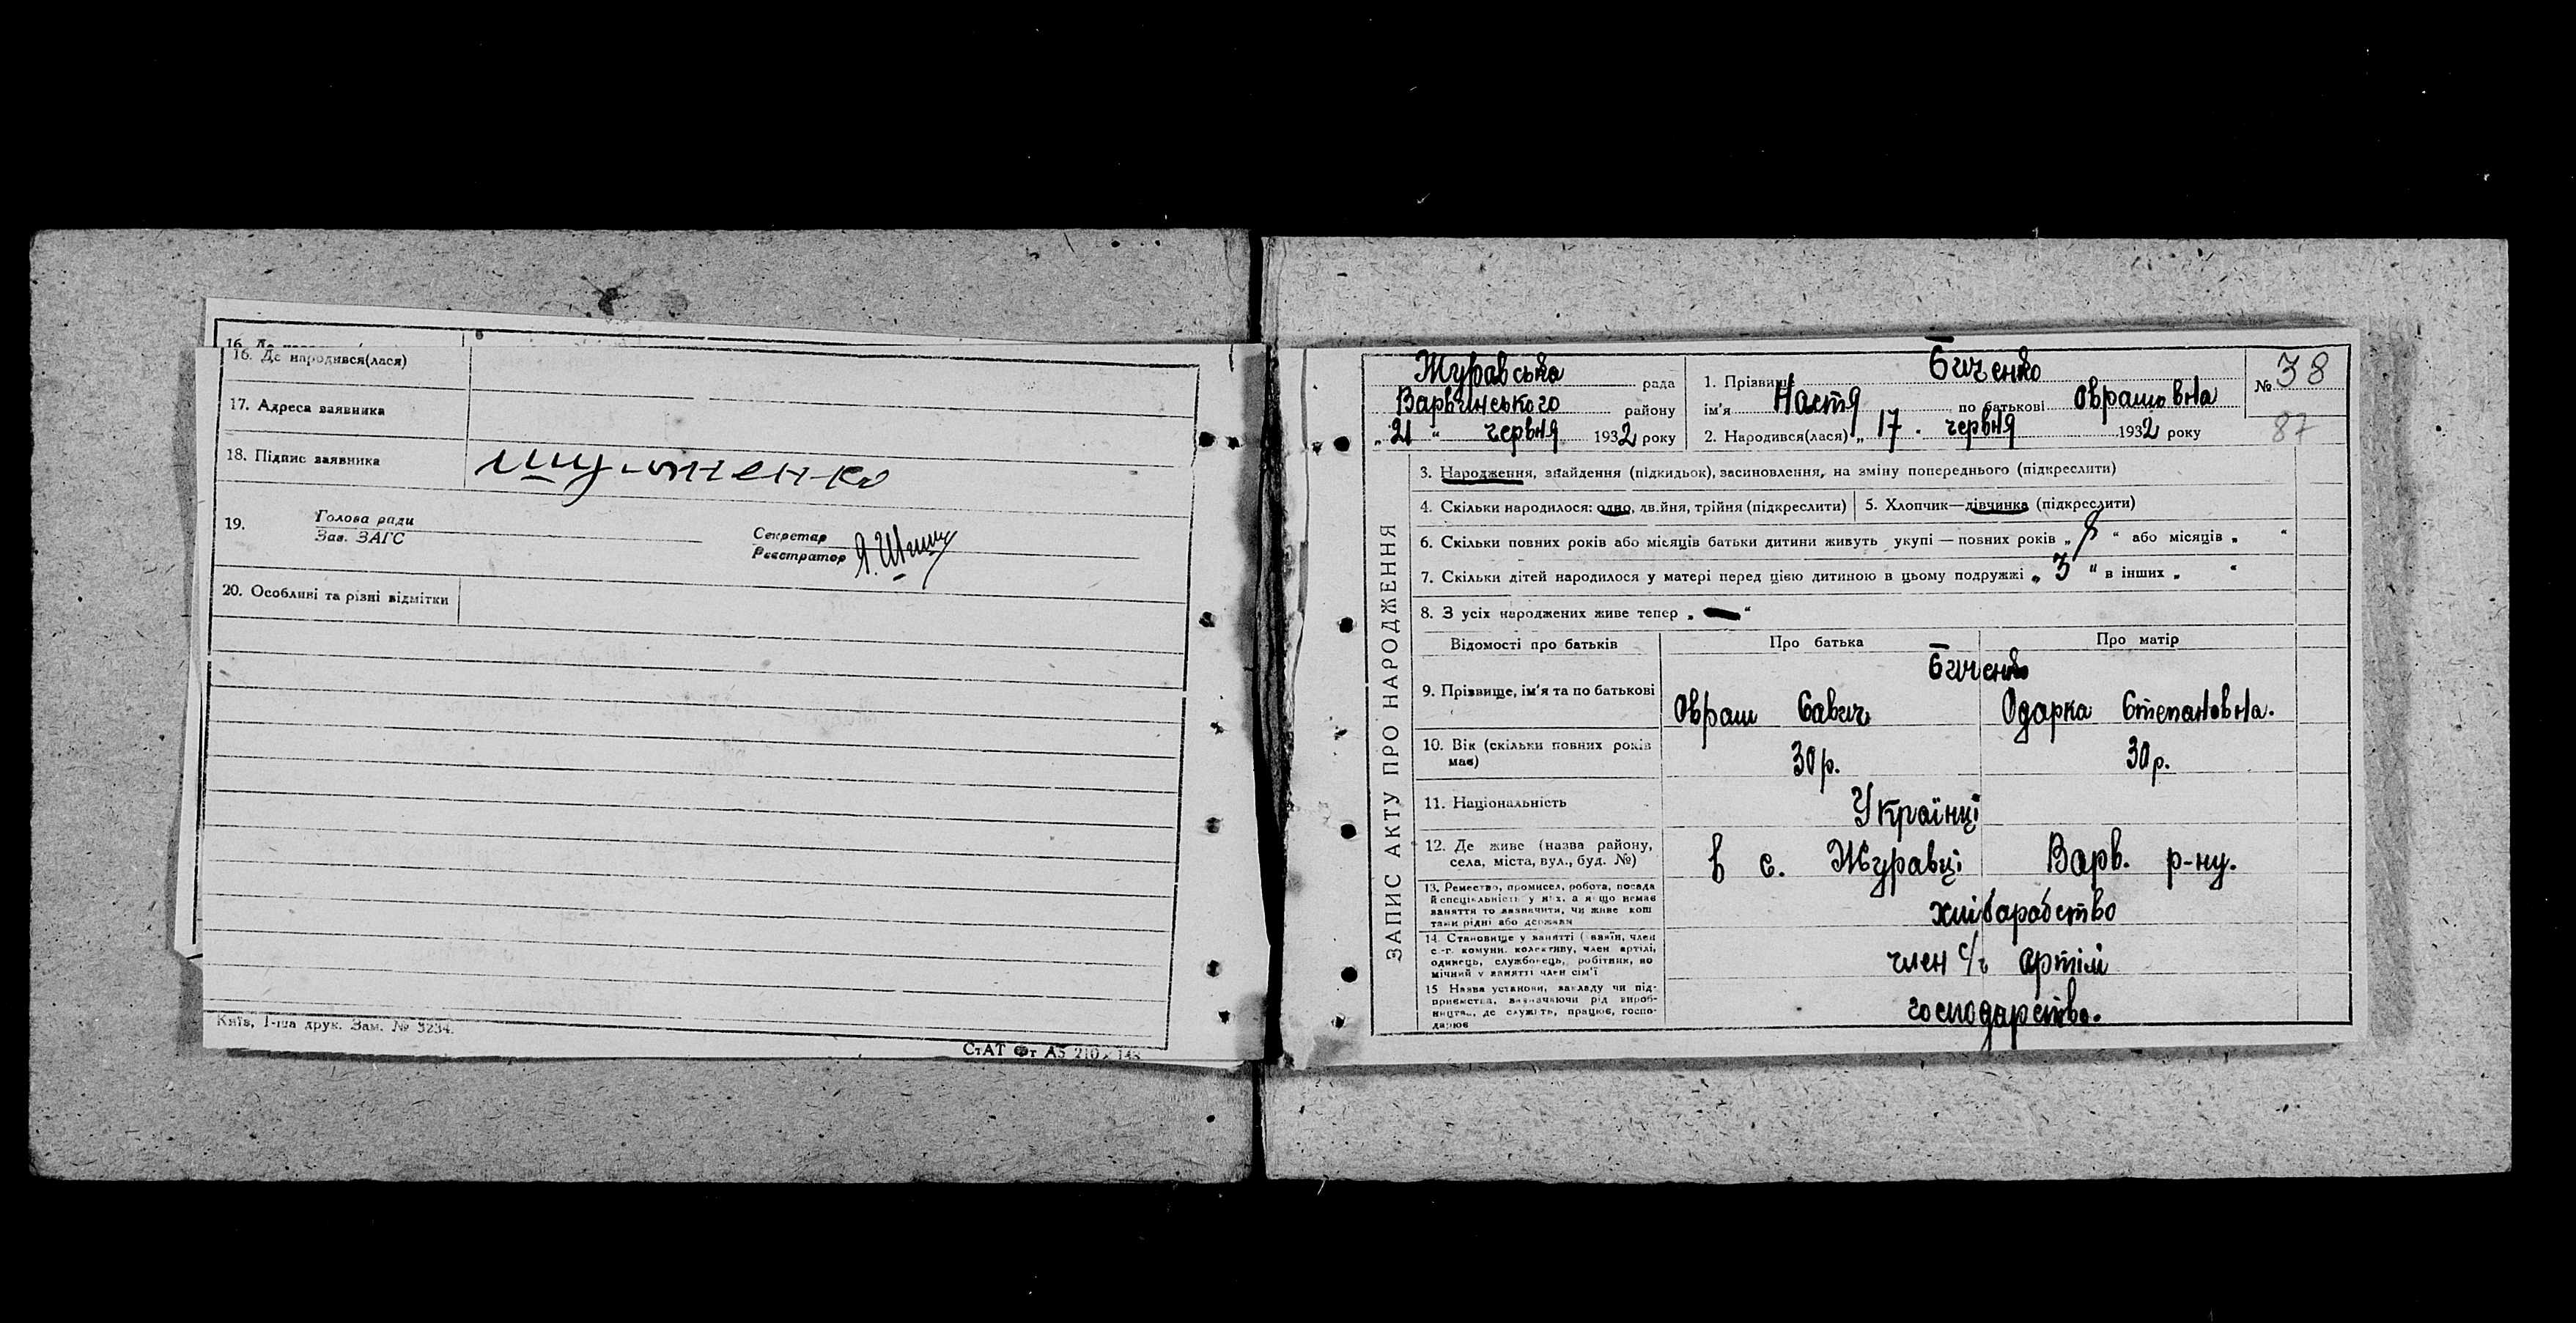 16. Де народився(лася)
17. Адреса заявника
18. Підпис заявника
19. Голова ради
Зав. ЗАГС
Секретар
Реєстратор
20. Особливі та різні відмітки
Київ, 1-ша друк. Зам. № 3234.
СтАТ Фт А5 210 148
ЗАПИС АКТУ ПРО НАРОДЖЕННЯ
Журавська рада
Варвинського району
„21“ червня 1932 року
1. Прізвище Биченко
ім'я Настя по батькові Оврашовна
2. Народився(лася) „17. червня 1932 року
№ 38
87
3. Народження, знайдення (підкидьок), засиновлення, на зміну попереднього (підкреслити)
4. Скільки народилося: одно, двійня, трійня (підкреслити)
5. Хлопчик—дівчинка (підкреслити)
6. Скільки повних років або місяців батьки дитини живуть укупі — повних років „8“ або місяців „ “
7. Скільки дітей народилося у матері перед цією дитиною в цьому подружжі „3“ в інших „ “
8. З усіх народжених живе тепер „—“
Відомості про батьків Про батька Про матір
Биченко
9. Прізвище, ім'я та по батькові Овраш Савич Одарка Степановна.
10. Вік (скільки повних років має) 30 р. 30 р.
11. Національність Українці
12. Де живе (назва району,
села, міста, вул., буд. №) в с. Журавці Варв. р-ну.
13. Ремество, промисел, робота, посада
й спеціяльність у них, а якщо немає
заняття то зазначити, чи живе кош
тами рідні або держави
хліборобство
14. Становище у занятті (хазяїн, член
с.-г. комуни, колективу, член артілі,
одинець, службовець, робітник, по
мічний у занятті член сім'ї
член с/г артілі
15 Назва установи, закладу чи під-
приємства, визначаючи рід вироб-
ництва, де служить, працює, госпо-
дарює
господарство.